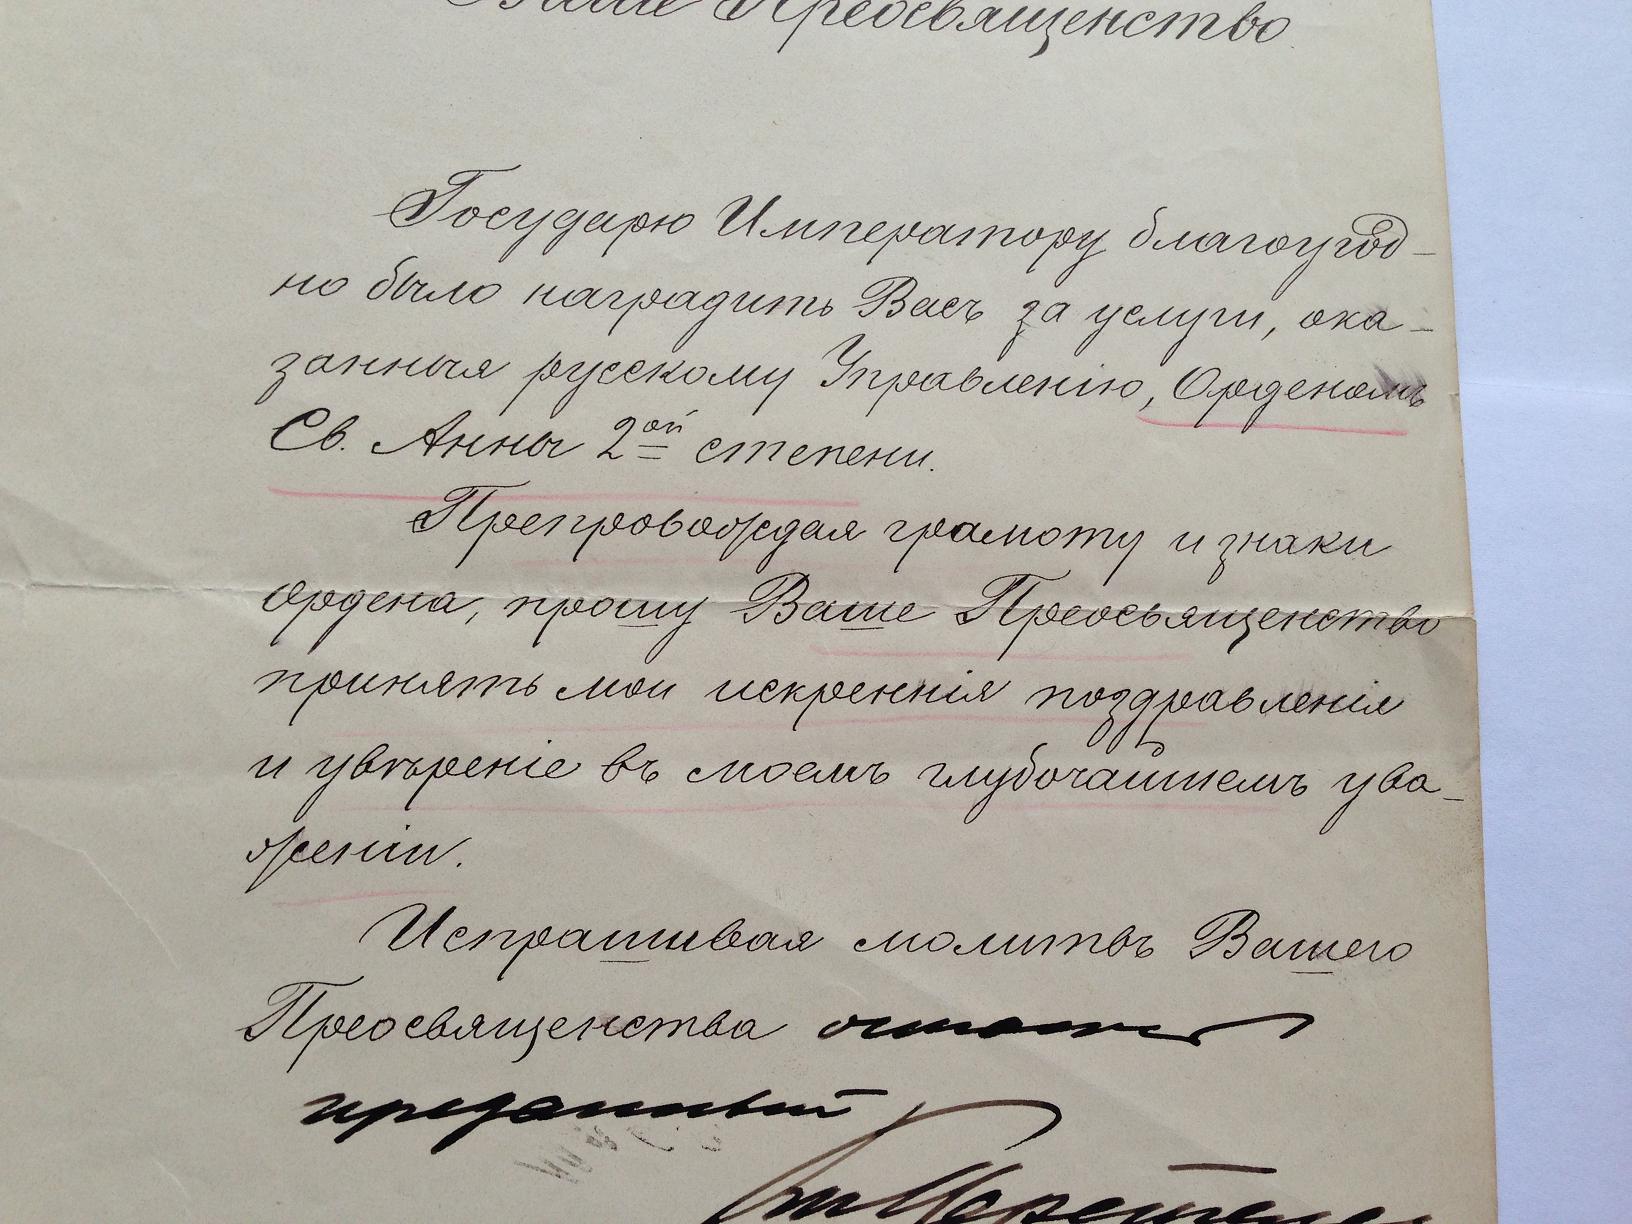 Ваше Преосвященство
Государю Императору благоугод-
но было наградить Васъ за услуги, ока-
занныя русскому Управленію, Орденомъ
Св. Анны 2ой степени.
Препровождая грамоту и знаки
Ордена, прошу Ваше Преосвященство
принять мои искреннія поздравленія
и увѣреніе въ моемъ глубочайшемъ ува-
женіи.
Испрашивая молитвъ Вашего
Преосвященства
преданный